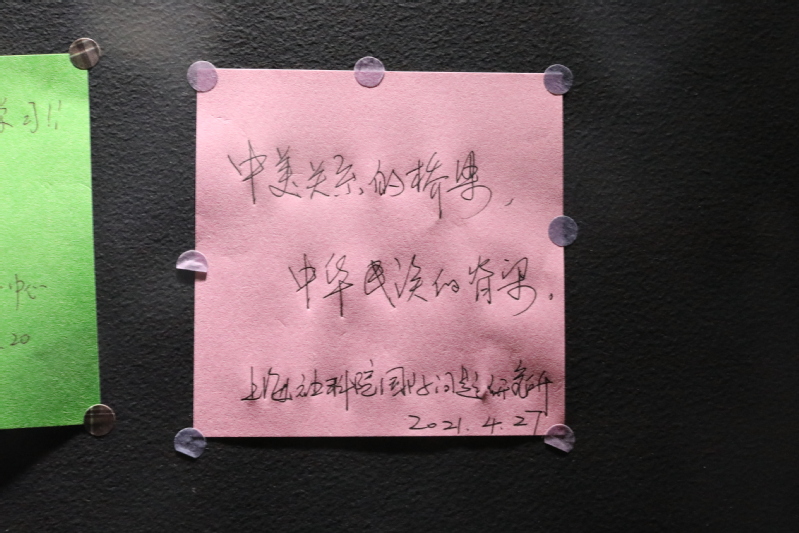 学习!!
中心
20
中美关系的桥梁,
中华民族的脊梁。
上海社科院国际问题研究所
2021.4.27